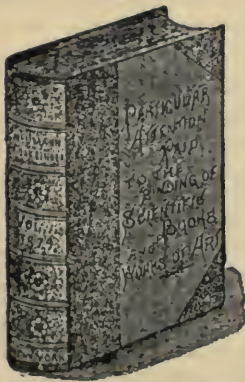 VOL.
1874.
NEW YORK
PARTICULAR
ATTENTION
PAID
TO THE
BINDING OF
SCIENTIFIC
BOOKS
AND
WORKS OF ART